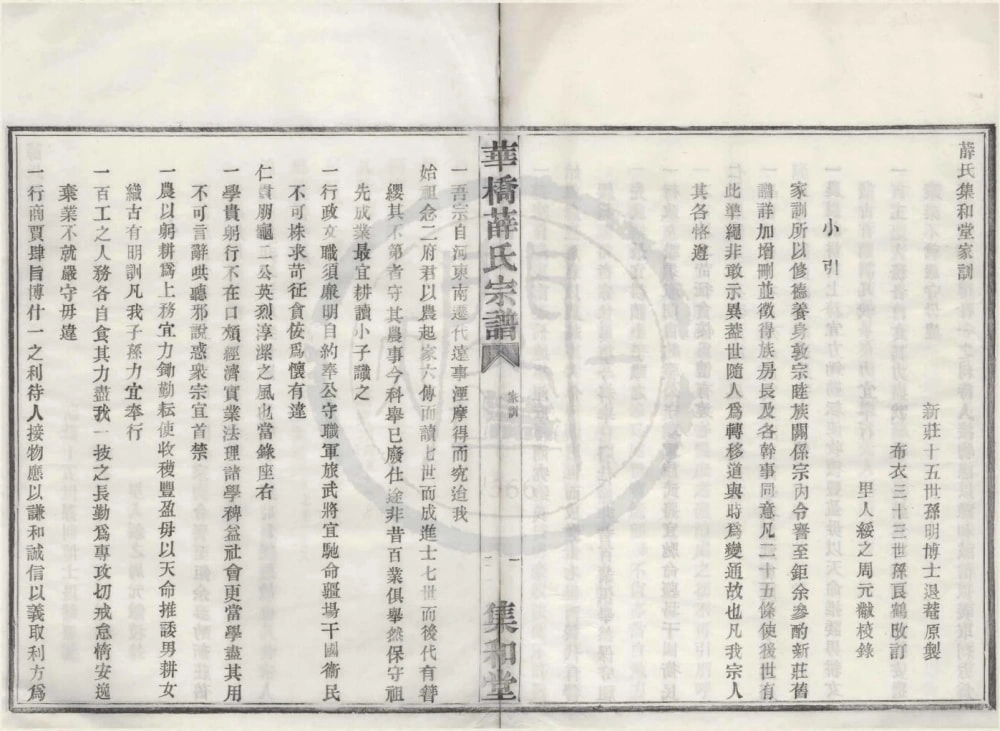 薛氏集和堂家訓
新莊十五世孫明博士退菴原製
布衣三十三世孫良鶴改訂
里人綏之周元黻校錄
小引
家訓所以修德養身敦宗睦族關係宗內令譽至鉅余參酌新莊舊
譜詳加增刪並徵得族房長及各幹事同意凡二十五條使後世有
此準繩非敢示異蓋世隨人為轉移道與時為變通故也凡我宗人
其各恪遵
華橋薛氏宗譜
家訓
一
集和堂
一吾宗自河東南遷代遠事湮摩得而究迨我
始祖念二府君以農起家六傳而讀七世而成進士七世而後代有簪
纓其不第者守其農事今科舉已廢仕途非昔百業俱舉然保守祖
先成業最宜耕讀小子識之
一行政文職須廉明自約奉公守職軍旅武將宜馳命疆場干國衞民
不可株求苛征貪侫爲懷有違
仁貴朋龜二公英烈淳潔之風也當錄座右
一學貴躬行不在口頰經濟實業法理諸學裨益社會更當學盡其用
不可言辭哄聽邪說惑衆宗宜首禁
一農以躬耕爲上務宜力鋤勤耘使收穫豐盈毋以天命推諉男耕女
織古有明訓凡我子孫力宜奉行
一百工之人務各自食其力盡我一技之長勤爲專攻切戒怠惰安逸
棄業不就嚴守毋違
一行商賈肆旨博什一之利待人接物應以謙和誠信以義取利方爲